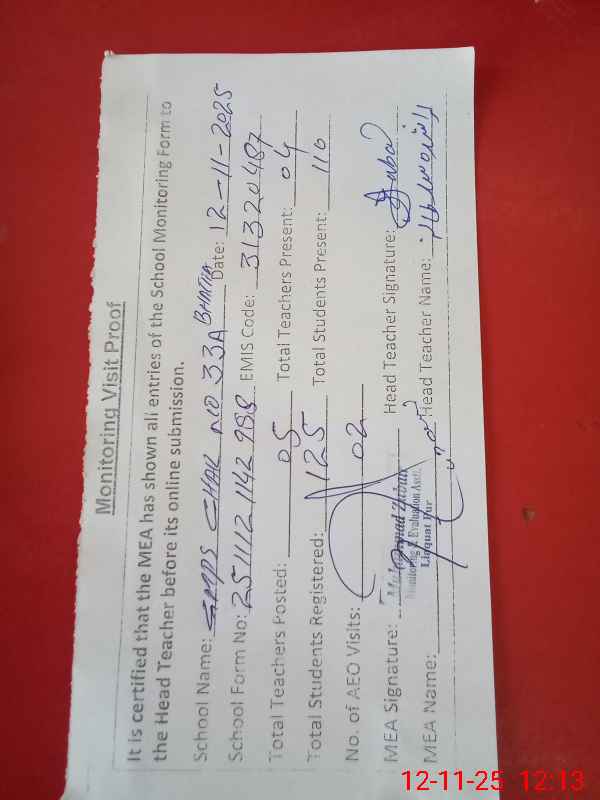 Monitoring Visit Proof
It is certified that the MEA has shown all entries of the School Monitoring Form to
the Head Teacher before its online submission.
School Name: GMPS CHAK NO 33A BHINTHA Date: 12-11-2025
School Form No: 251112 1142 988 EMIS Code: 31320487
Total Teachers Posted: 05 Total Teachers Present: 04
Total Students Registered: 125 Total Students Present: 110
No. of AEO Visits: 02
MEA Signature: Head Teacher Signature:
Muhammad Zubair
Monitoring & Evaluation Asstt.
Liaquat Pur
MEA Name: Head Teacher Name:
12-11-25 12:13